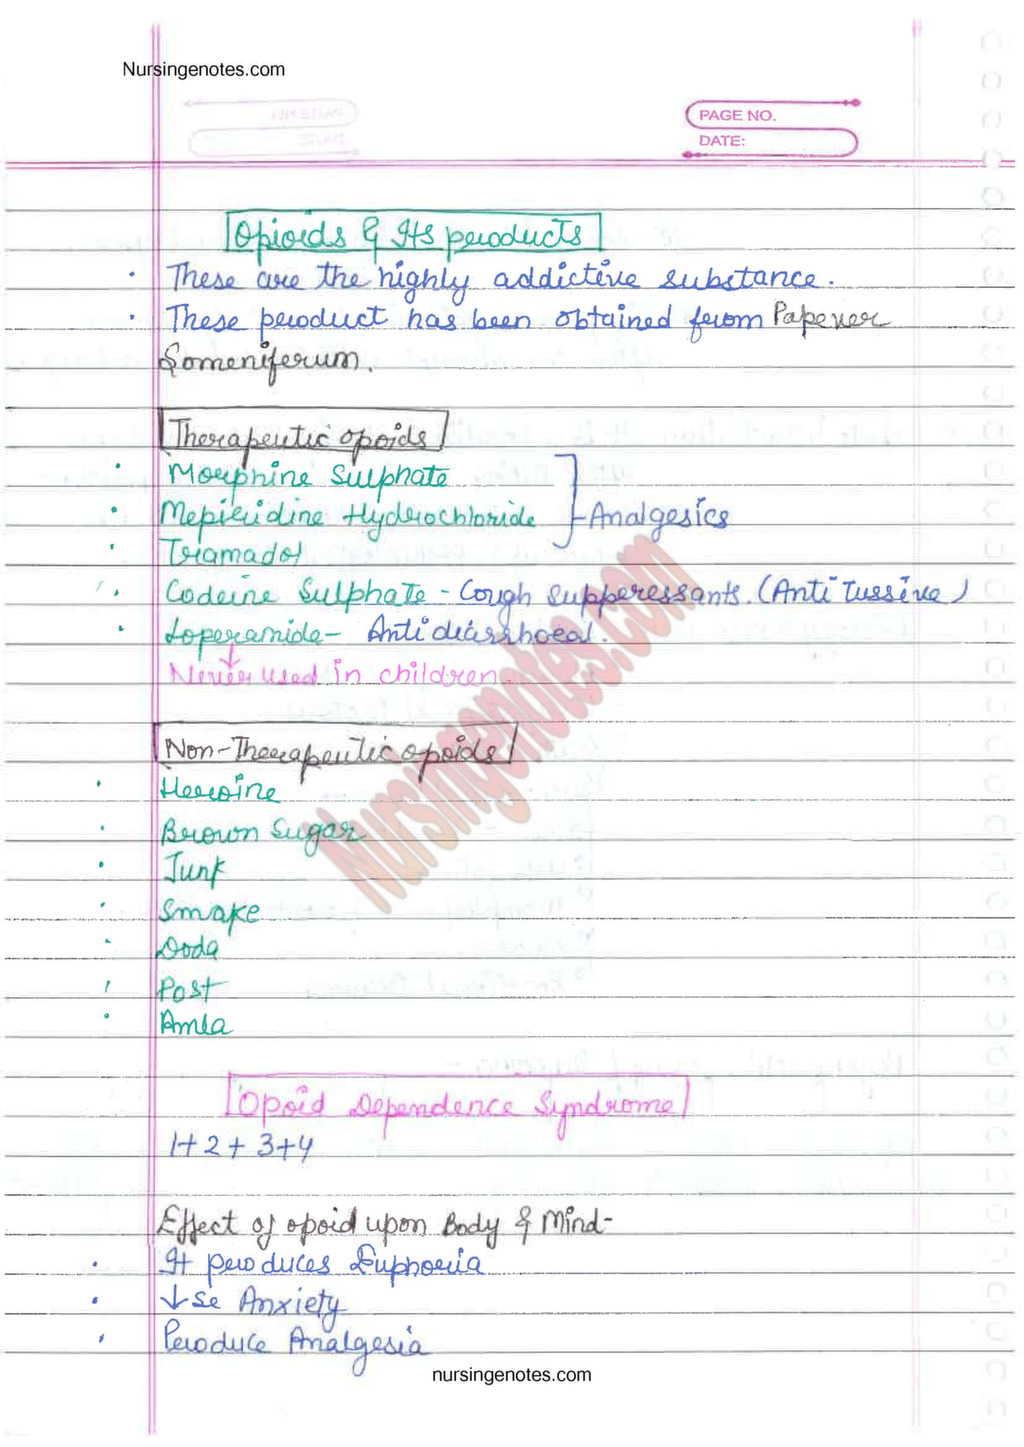 Nursingenotes.com
PAGE NO.
DATE:
Opioids & Its products
· These are the highly addictive substance.
· These product has been obtained from Papever
Someniferum.
Therapeutic opoids
· Morphine Sulphate
· Mepiridine Hydrochloride - Analgesics
· Tramadol
· Codeine Sulphate - Cough suppressants. (Anti Tussive)
· Loperamide - Antidiarrhoeal.
↓
Never used in children.
Non-Therapeutic opoids
· Heroine
· Brown Sugar
· Junk
· Smake
· Doda
· Post
· Amla
Opoid Dependence Syndrome
1+2+3+4
Effect of opoid upon Body & Mind-
· It produces Euphoria
· ↓se Anxiety
· Produce Analgesia
Nursingenotes.com
nursingenotes.com